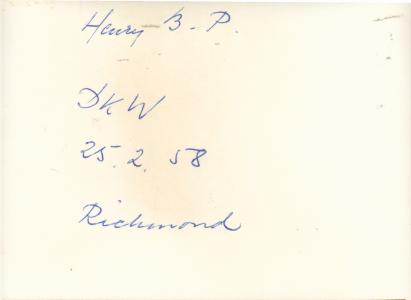 Henry B-P.
DKW
25.2.58
Richmond